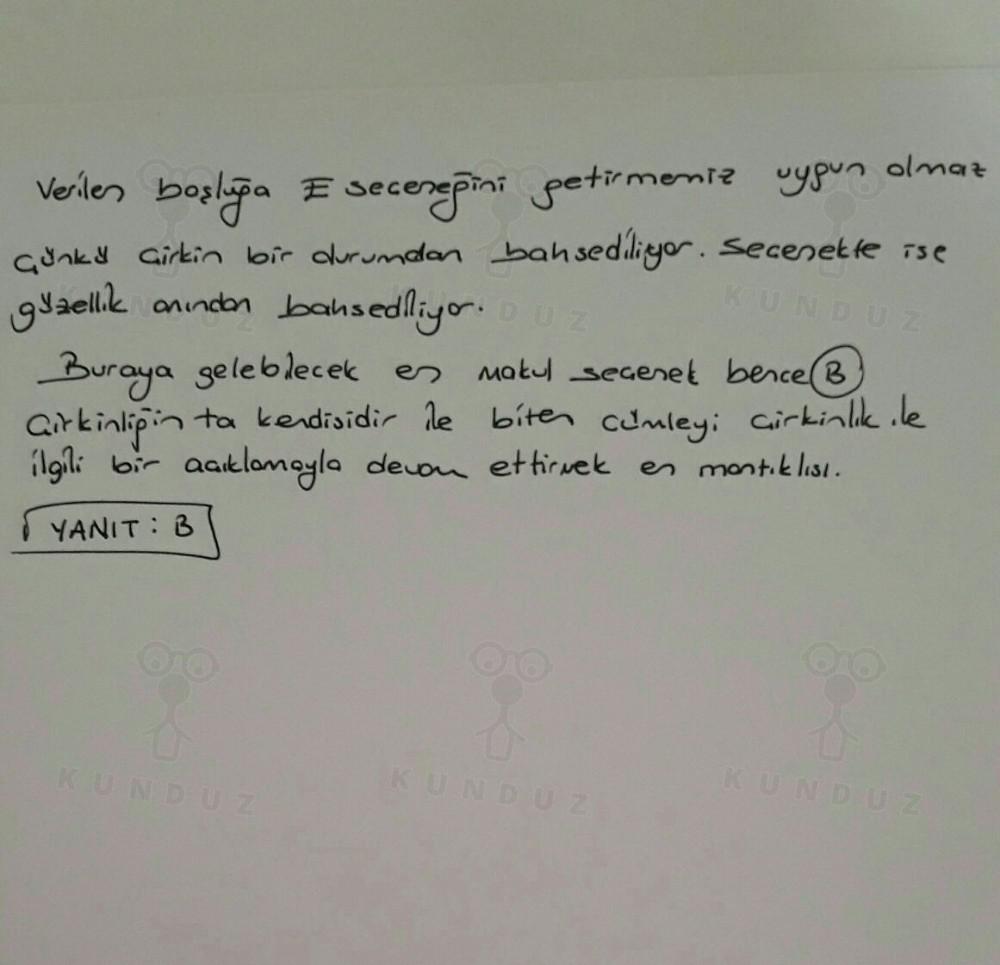 Verilen boşluğa E seceneğini getirmemiz uygun olmaz
çünkü çirkin bir durumdan bahsediliyor. Secenekte ise
güzellik anından bahsediliyor.
Buraya gelebilecek en makul secenek bence B
çirkinliğin ta kendisidir ile biten cümleyi çirkinlik ile
ilgili bir açıklamayla devam ettirmek en mantıklısı.
YANIT: B
KUNDUZ
KUNDUZ
KUNDUZ
KUNDUZ
KUNDUZ
KUNDUZ